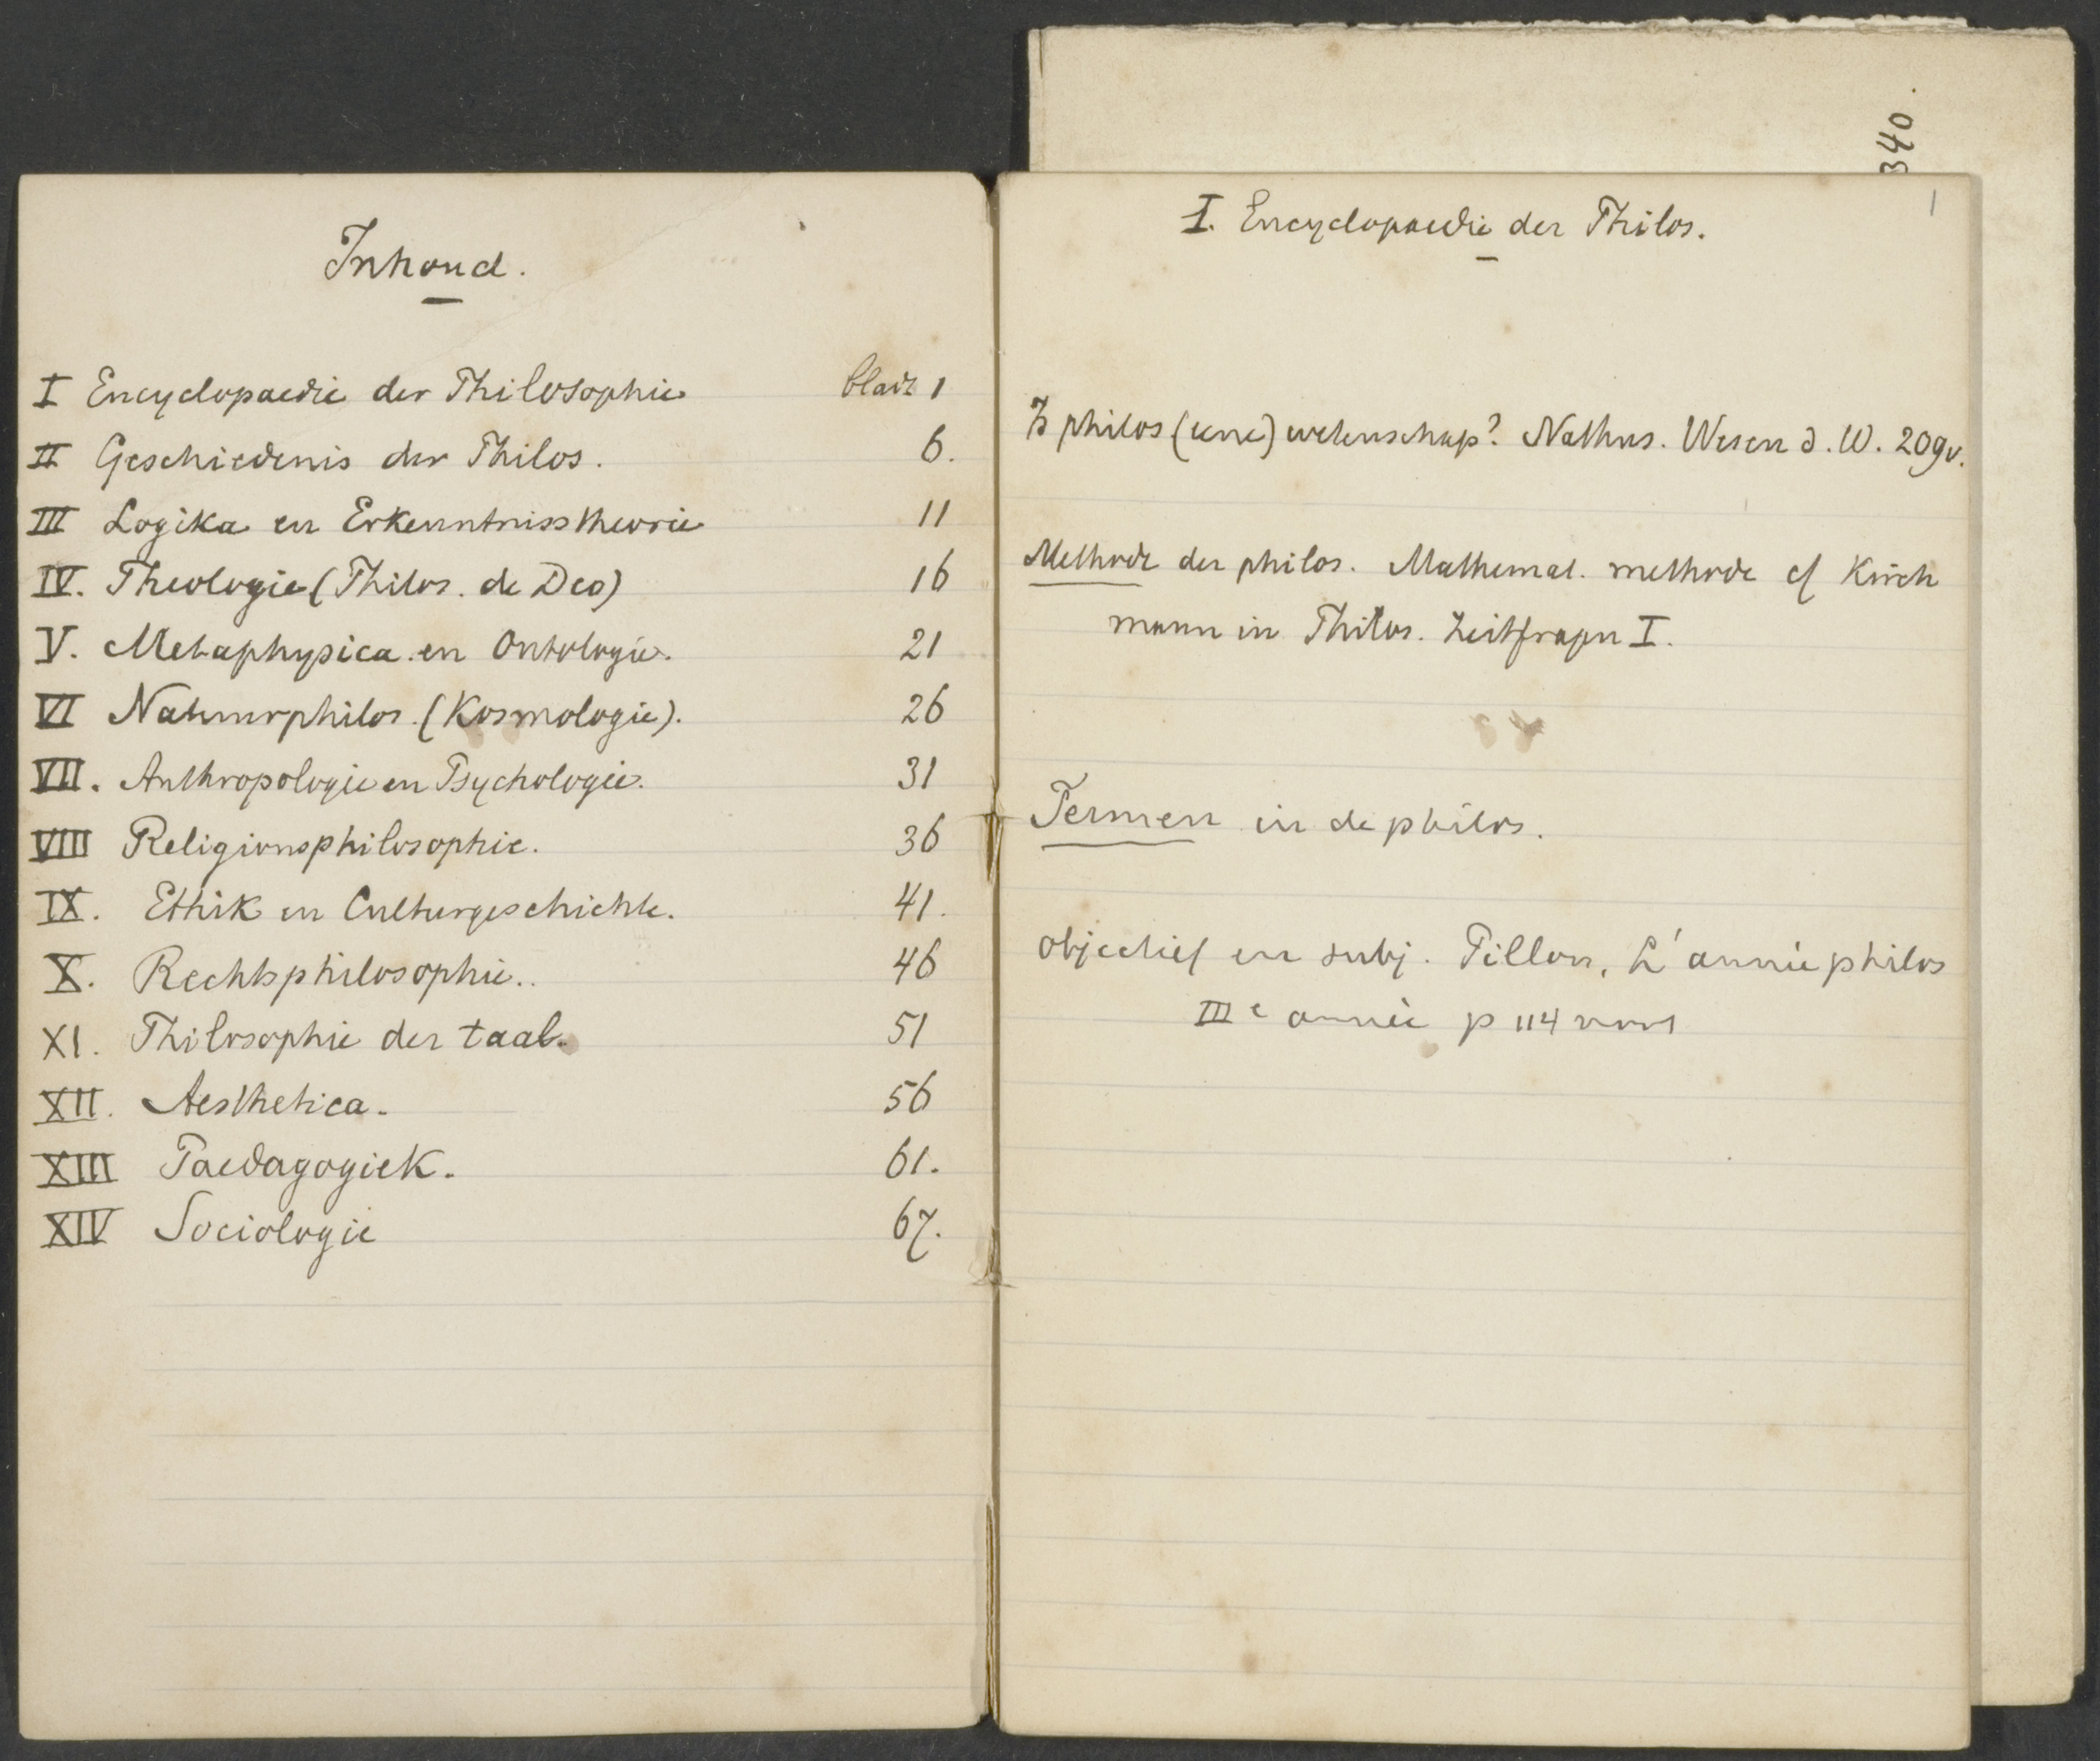 Inhoud.
I Encyclopaedie der Philosophie bladz 1
II Geschiedenis der Philos. 6.
III Logika en Erkenntnisstheorie 11
IV. Theologie (Philos. de Deo) 16
V. Metaphysica en Ontologie. 21
VI Natuurphilos. (Kosmologie). 26
VII. Anthropologie en Psychologie. 31
VIII Religionsphilosophie. 36
IX. Ethik en Culturgeschichte. 41.
X. Rechtsphilosophie.. 46
XI. Philosophie der taal. 51
XII. Aesthetica. 56
XIII Paedagogiek. 61.
XIV Sociologie 67.
340.
1
I. Encyclopaedie der Philos.
Is philos (eene) wetenschap? Nathus. Wesen d. W. 209v.
Methode der philos. Mathemat. methode cf Kirch
mann in Philos. Zeitfragen I.
Termen in de philos.
objectief en subj. Pillon, L'année philos
IIIe année p 114